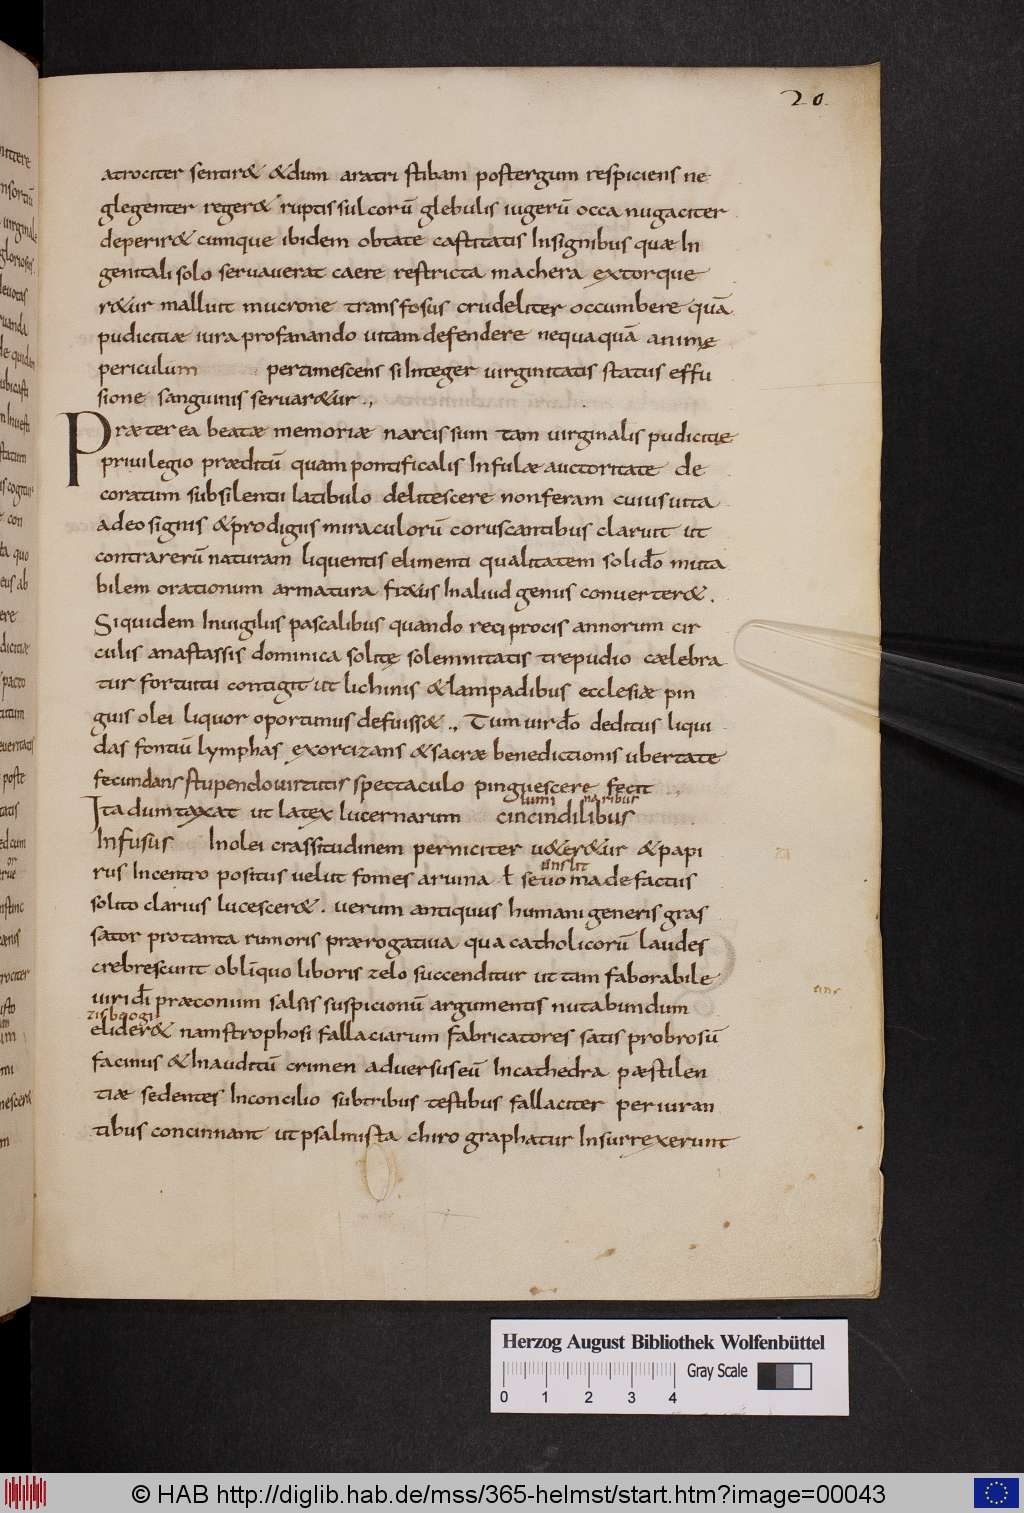 20.
atrociter sentir& &dum aratri stibam postergum respiciens ne
glegenter reger& ruptis sulcorū glebulis iugerū occa nugaciter
deperir& cumque ibidem obtate castitatis Insignibus quæ In
genitali solo servaverat caere restricta machera extorque
r&ur malluit mucrone transfosus crudeliter occumbere quā
pudicitiæ iura profanando vitam defendere nequaquā animę
periculum pertimescens si Integer virginitatis status effu
sione sanguinis servar&ur.,
Præterea beatæ memoriæ narcissum tam virginalis pudicitię
privilegio præditū quam pontificalis Infulæ auctoritate de
coratum subsilentii latibulo delitescere nonferam cuius vita
adeo signis &prodigiis miraculorū coruscantibus claruit ut
contrarerū naturam liquentis elimenti qualitatem solido muta
bilem orationum armatura fr&us Inaliud genus converter&.
Siquidem Invigiliis pascalibus quando reciprocis annorum cir
culis anastassis dominica solitę solemnitatis trepudio cælebra
tur fortuitu contigit ut lichinis &lampadibus ecclesiæ pin
guis olei liquor oportunus defuiss&., Tum vir dō deditus liqui
das fontiū lymphas exorcizans &sacræ benedictionis ubertate
fecundans stupendo virtutis spectaculo pinguescere fecit
Ita dumtaxat ut latex lucernarum cincindilibus
Infusus Inolei crassitudinem perniciter v&er&ur &papi
rus Incentro positus velut fomes arvina ł sevo madefactus
solito clarius lucescer&. verum antiquus humani generis gras
sator protanta rumoris prærogativa qua catholicorū laudes
crebrescunt oblīquo liboris zelo succenditur ut tam faborabile
viri dī præconium salsis suspicionū argumentis nutabundum
elider& nam strophosi fallaciarum fabricatores satis probrosū
facinus &Inauditū crimen adversus eū Incathedra pæstilen
tiæ sedentes Inconcilio subtribus testibus fallaciter periuran
tibus concinnant ut psalmista chirographatur Insurrexerunt
Herzog August Bibliothek Wolfenbüttel
Gray Scale
0 1 2 3 4
© HAB http://diglib.hab.de/mss/365-helmst/start.htm?image=00043